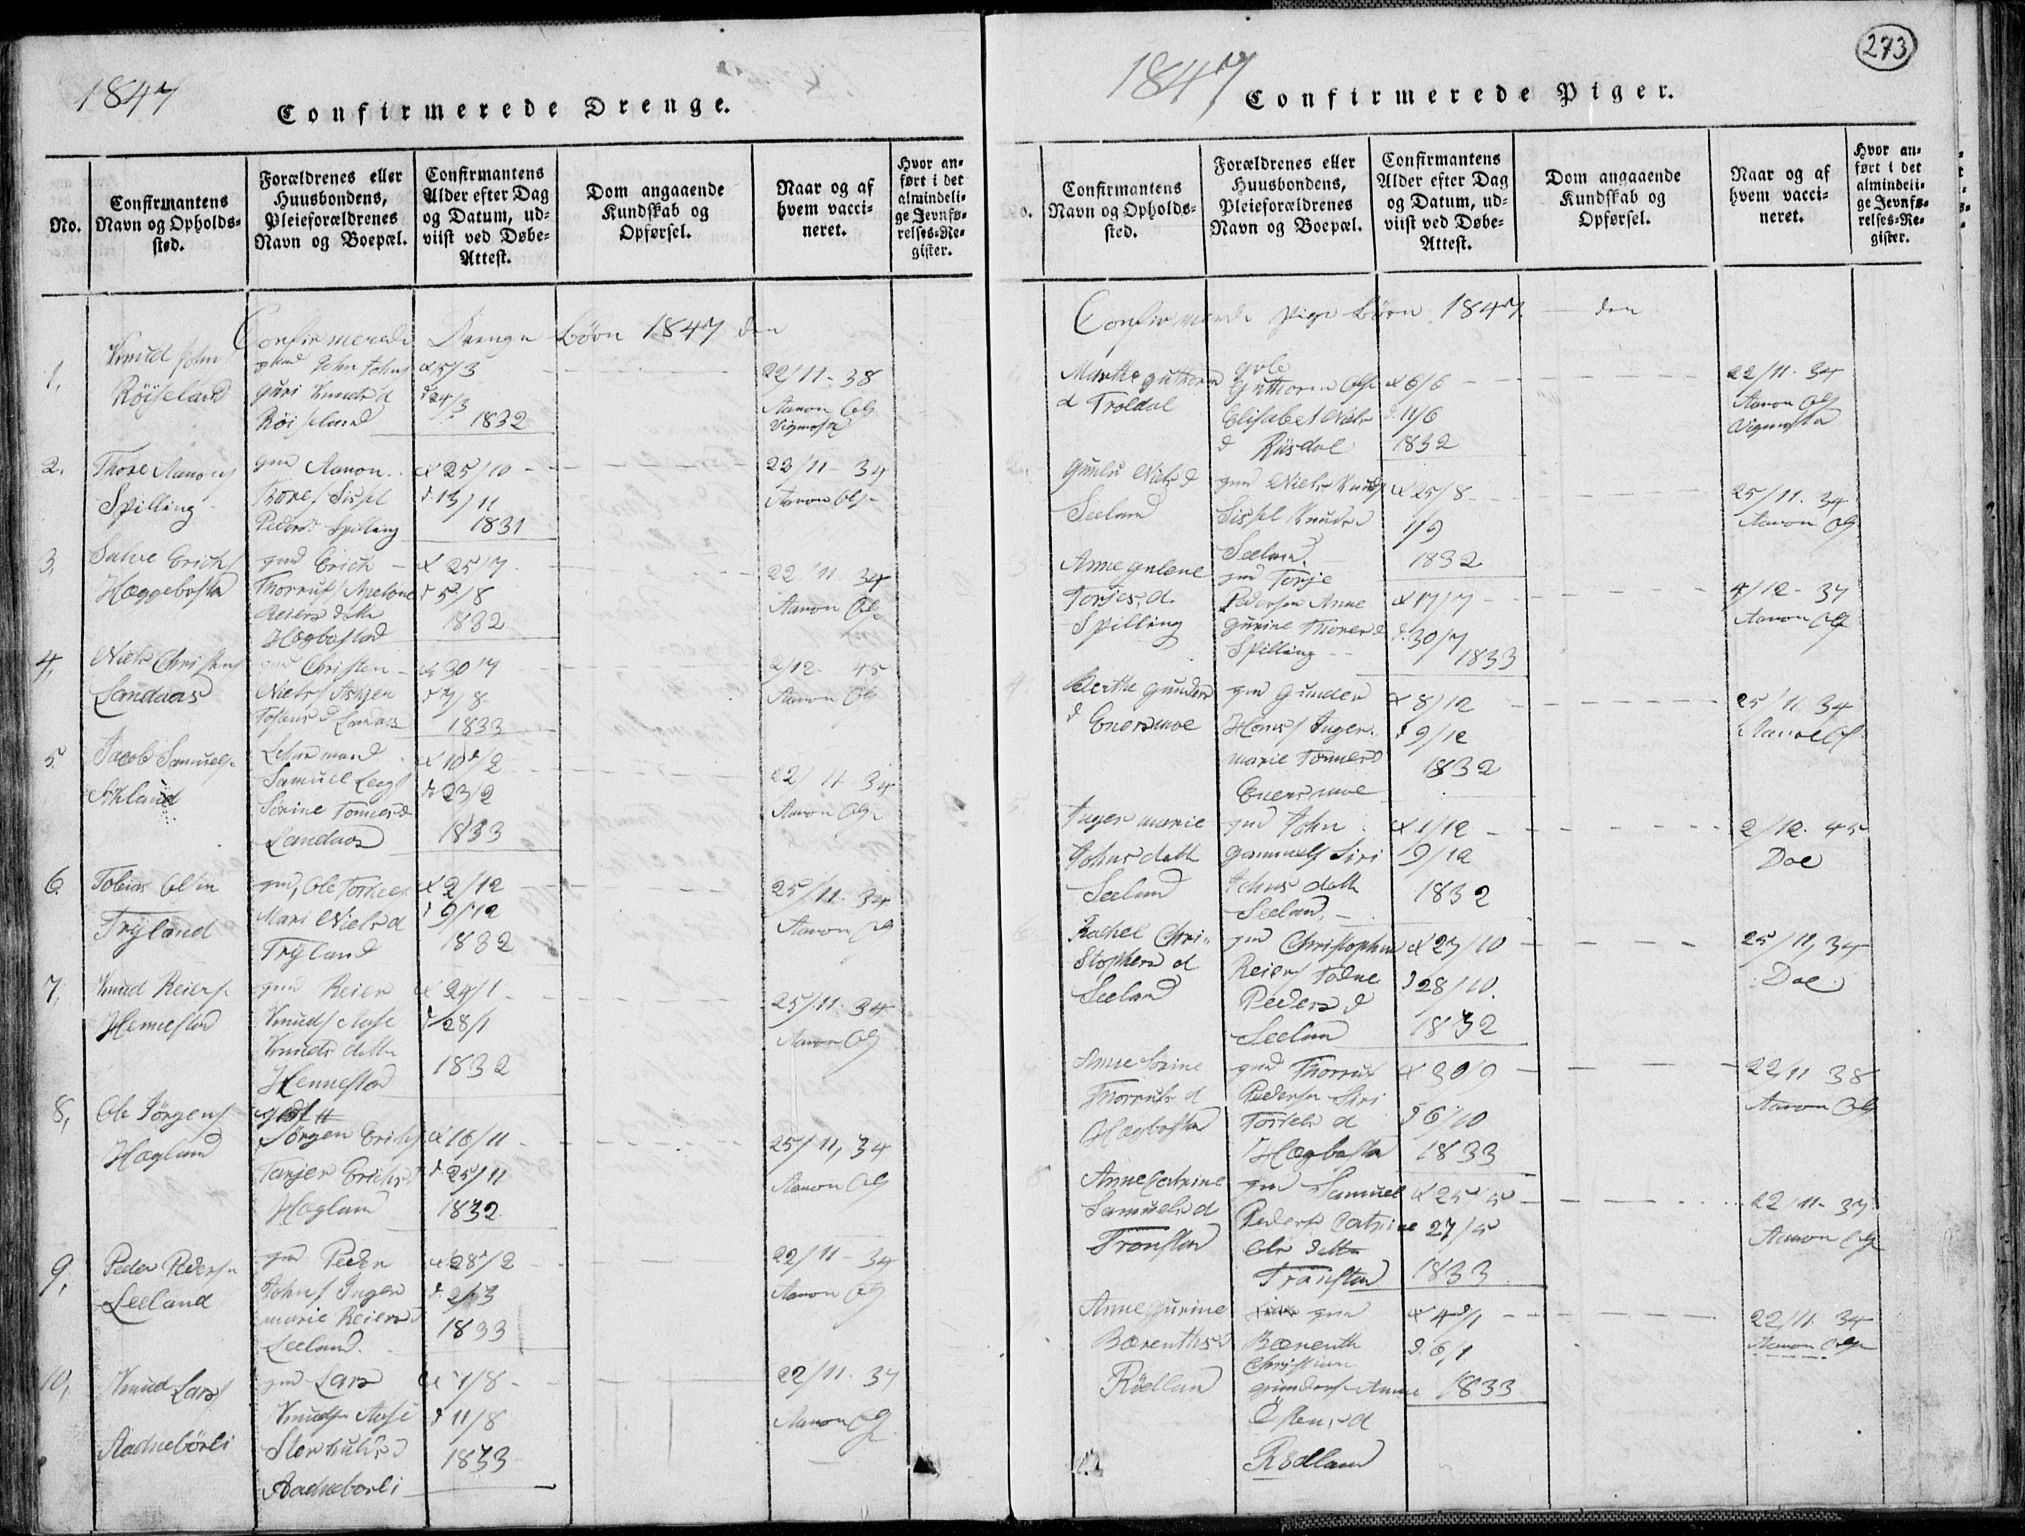 1847
Confirmerede Drenge.
No.
Confirmantens
Navn og Opholds-
sted.
Forældrenes eller
Huusbondens,
Pleieforældrenes
Navn og Boepæl.
Confirmantens
Alder efter Dag
og Datum, ud-
viist ved Døbe-
Attest.
Dom angaaende
Kundskab og
Opførsel.
Naar og af
hvem vacci-
neret.
Hvor an-
ført i det
almindeli-
ge Jevnfø-
relses-Re-
gister.
Confirmerede Drenge børn 1847 den
1,
Knud John
Røiseland
John Johns
Guri Knuds d
Røiseland
5/3
24/3
1832
22/11-38
Aanon Ols
Vigmosta
2.
Thore Aanons
Spilling
gmd Aanon
Thores Sissel
Peders d Spilling
25/10
13/11
1831
22/11-34
Aanon Ols
3,
Salve Erichs
Hæggebosta
gmd Erich
Thorrus
Reiers datter
Hægbostad
25/7
5/8
1832
22/11-34
Aanon Ols
4,
Niels Christens
Landaas
gmd Christen
Niels Asgjer
Tostens d Landaas
30/7
7/8
1833
2/12-45
Aanon Ols
5.
Jacob Samuels
Ihland
Samuel
Sørine Tønnes d
Landaas
10/2
23/2
1833
22/11-34
Aanon Ols
6
Tobias Olsen
Tryland
gmd, Ole
Mari Niels d
Tryland
2/12
9/12
1832
25/11-34
Aanon Ols
7,
Knud Reiers
Hennestad
gmd Reier
Knuds Aase
Knuds datter
Hennestad
24/1
28/1
1832
25/11-34
Aanon Ols
8,
Ole Jørgens
Hægland
Jørgen Erichs
Tarjer Erichs d
Hægland
16/11
25/11
1832
25/11, 34
Aanon Ols
9,
Peder Peders
Leeland
gmd Peder
Johns Inger
marie Reiers d
Leeland
28/2
2/3
1833
22/11-34
Aanon Ols
10,
Knud Lars
Aadnebørli
gmd Lars
Knuds Aase
Aadneborli
1/8
11/8
1833
22/11. 34
Aanon Ols
273
1847
Confirmerede Piger.
No.
Confirmantens
Navn og Opholds-
sted.
Forældrenes eller
Huusbondens,
Pleieforældrenes
Navn og Boepæl.
Confirmantens
Alder efter Dag
og Datum, ud-
viist ved Døbe-
Attest.
Dom angaaende
Kundskab og
Opførsel.
Naar og af
hvem vacci-
neret.
Hvor an-
ført i det
almindeli-
ge Jevnfø-
relses-Re-
gister.
Confirmerede pige børn 1847 den
Marthe Guttorm
d Troldal
Guttorm Ols
Elisabet Niels
d Riisdal
6/6
11/6
1832
22/11-34
Aanon Ols
Vigmosta
Gunlu Niels d
Seeland
gmd Niels Knuds
Sissel Knuds d
Seeland
25/8
1/9
1832
25/11. 34
Aanon Ols
3
Anne Gulene
Torjes, d.
Spilling
gmd Torje
Pedersen Anne
Gurine Thores d
Spilling
17/7
30/7
1833
4/12-37
Aanon Ols
4
Berthe Gunders
d Enersmoe
gmd Gunder
Hans Inger
marie Tønnes d
Enersmoe
8/12
9/12
1832
25/11 34
Aanon Ols
Inger marie
Johns datt
Seeland
gmd John
Gammels Siri
Johns datt
Seeland
1/12
9/12
1832
2/12. 45
Doe
Rachel Chri-
stophers d
Seeland
gmd Christopher
Reiers Tolne
Peders d
Seeland
27/10
28/10.
1832
25/11, 34
Doe
Anne Sørine
Thorruls d
Hægbosta
gmd Thorrus
Pedersen Siri
Torkels d
Hægbosta
30/9
6/10
1833
22/11 38
Aanon Ols
8
Anne Catrine
Samuels d
Trønstad
gmd Samuel
Peders Catrine
Ols datter
Tronstad
25/5
27/5
1833
22/11-37
Aanon Ols
Anne Gurine
Bærenths d
Rødland
gmd
Bærenth
Christian
Gunders Anne
Østens d
Rødland
4/1
6/1
1833
22/11. 34
Aanon Ols